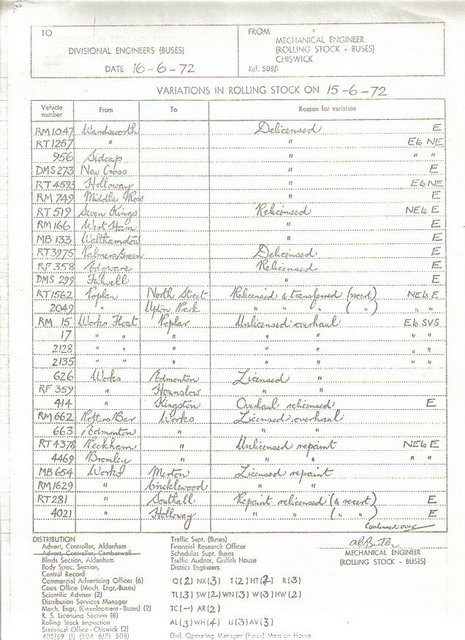 TO
DIVISIONAL ENGINEERS (BUSES)
DATE 16-6-72
FROM
MECHANICAL ENGINEER
(ROLLING STOCK - BUSES)
CHISWICK
Ref. 508/1
VARIATIONS IN ROLLING STOCK ON 15-6-72
Vehicle number From To Reason for variation
RM1047 Wandsworth Delicensed E
RT1257 " " E to NE
956 Sidcup " " "
DMS273 New Cross " E
RT4593 Holloway " E to NE
RM749 Middle Row " E
RT519 Seven Kings Relicensed NE to E
RM166 West Ham " E
MB133 Walthamstow " E
RT3975 Palmers Green Delicensed E
RF358 Edgware Relicensed E
DMS299 Fulwell " E
RT1562 Poplar North Street Relicensed & transferred (recert) NE to E
2049 " Upton Park " " " ( " ) "
RM15 Works Float Poplar Unlicensed overhaul E to SVS
17 " " " " " " "
2128 " " " " " " "
2135 " " " " " " "
626 Works Edmonton Licensed "
RF359 " Hounslow " "
414 " Kingston Overhaul relicensed E
RM662 Potters Bar Works Licensed overhaul
663 Edmonton " " "
RT4378 Peckham " Unlicensed repaint NE to E
4469 Bromley " " " " "
MB654 Works Merton Licensed repaint
RM1629 " Cricklewood " "
RT281 " Southall Repaint relicensed (& recert) E
4021 " Holloway " " ( " ) E
Continued over
DISTRIBUTION
Advert. Controller, Aldenham
Advert. Controller, Camberwell
Blinds Section, Aldenham
Body Spec. Section,
Central Record
Commercial Advertising Officer (6)
Costs Office (Mech. Engr.-Buses)
Scientific Adviser (2)
Distribution Services Manager
Mech. Engr. (Development-Buses) (2)
R. S. Licensing Section (6)
Rolling Stock Inspection
Statistical Office - Chiswick (2)
Traffic Supt. (Buses)
Financial Research Officer
Schedules Supt. Buses
Traffic Auditor, Griffith House
District Engineers
Q(2) NX(3) T(2) HT(2) R(3)
TL(3) SW(2) WN(3) W(3) HW(2)
TC(-) AR(2)
AL(3) H(3) U(3) AV(3)
Divl. Operating Manager (Buses) Mansion House
MECHANICAL ENGINEER
(ROLLING STOCK - BUSES)